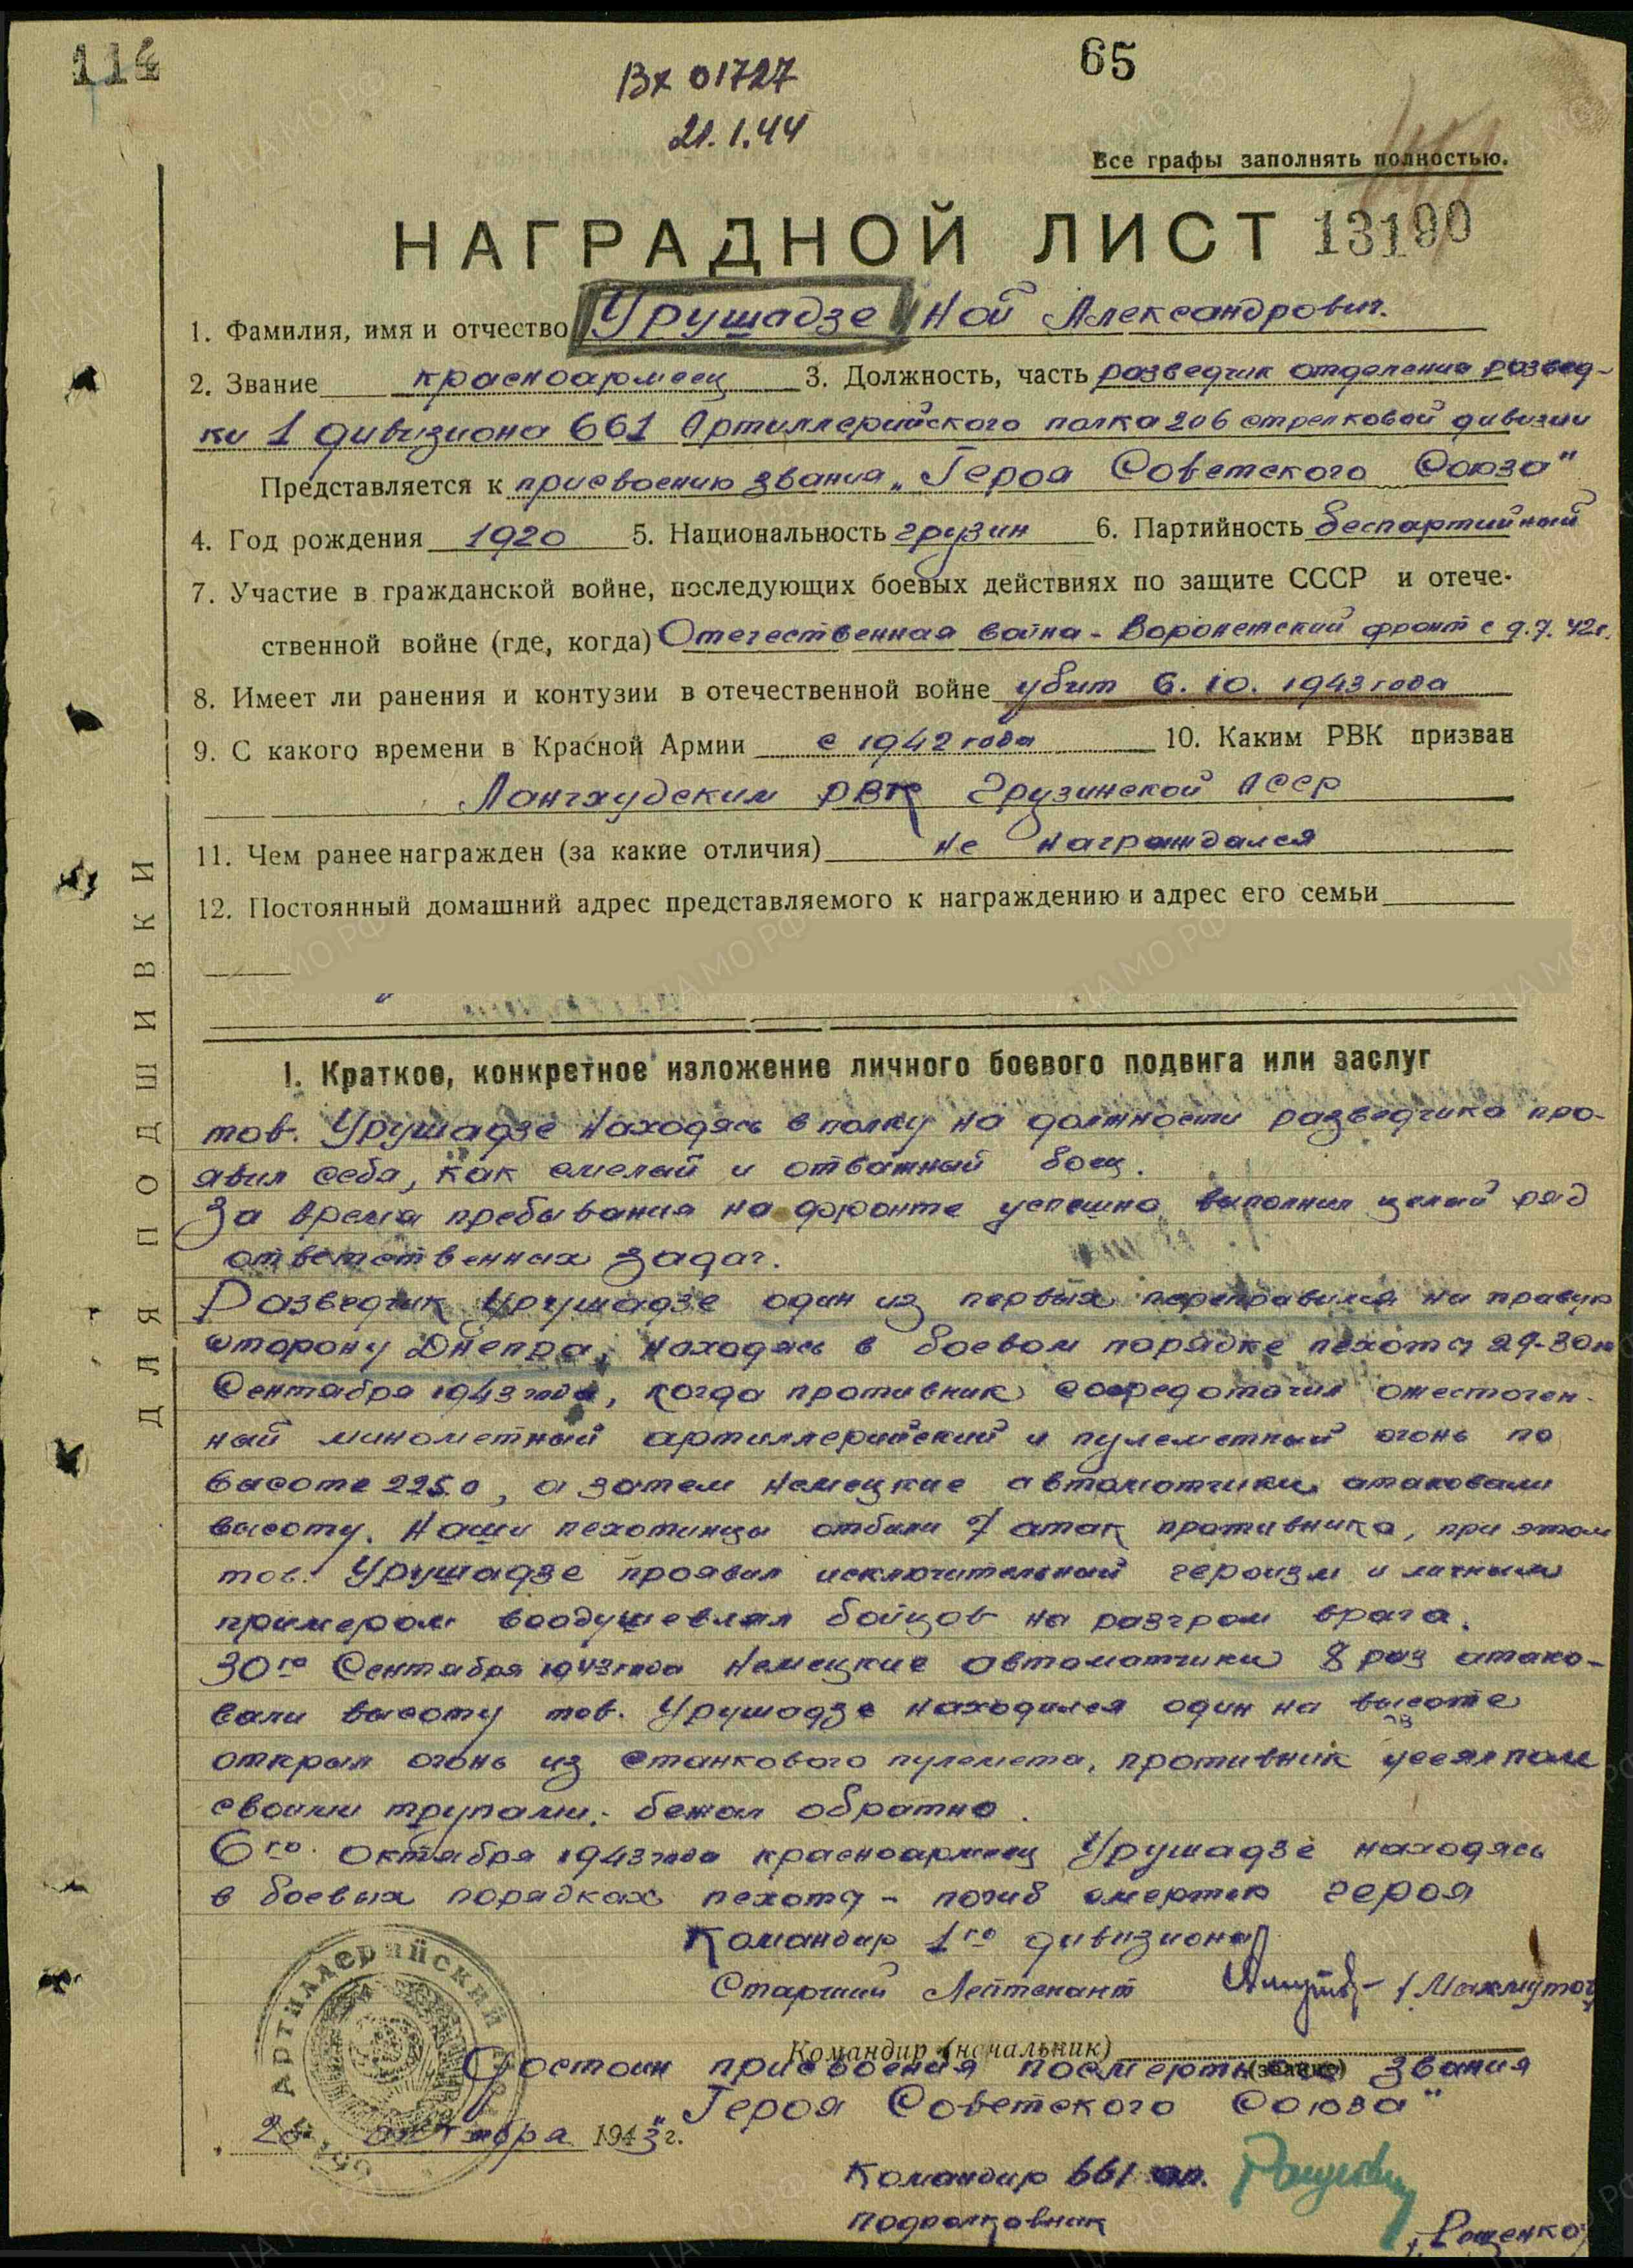 114
65
Вх 01727
21.1.44
Все графы заполнять полностью.
НАГРАДНОЙ ЛИСТ 13190
1. Фамилия, имя и отчество Урушадзе Ной Александрович.
2. Звание красноармеец 3. Должность, часть разведчик отделения развед-
ки 1 дивизиона 661 Артиллерийского полка 206 стрелковой дивизии
Представляется к присвоению звания „Героя Советского Союза"
4. Год рождения 1920 5. Национальность грузин 6. Партийность беспартийный
7. Участие в гражданской войне, последующих боевых действиях по защите СССР и отече-
ственной войне (где, когда) Отечественная война - Воронежский фронт с 9.7.42г.
8. Имеет ли ранения и контузии в отечественной войне убит 6.10.1943 года
9. С какого времени в Красной Армии с 1942 года 10. Каким РВК призван
Ланчхудским РВК Грузинской АССР
11. Чем ранее награжден (за какие отличия) не награждался
12. Постоянный домашний адрес представляемого к награждению и адрес его семьи
ДЛЯ ПОДШИВКИ
I. Краткое, конкретное изложение личного боевого подвига или заслуг
тов. Урушадзе находясь в полку на должности разведчика про-
явил себя, как смелый и отважный боец.
За время пребывания на фронте успешно выполнил целый ряд
ответственных задач.
Разведчик Урушадзе один из первых переправился на правую
сторону Днепра, находясь в боевом порядке пехоты 29-30го
Сентября 1943 года, когда противник сосредоточил ожесточен-
ный минометный артиллерийский и пулеметный огонь по
высоте 225.0, а затем немецкие автоматчики атаковали
высоту. Наши пехотинцы отбили 7 атак противника, при этом
тов. Урушадзе проявил исключительный героизм и личным
примером воодушевлял бойцов на разгром врага.
30го Сентября 1943 года немецкие автоматчики 8 раз атако-
вали высоту тов. Урушадзе находился один на высоте
открыл огонь из станкового пулемета, противник усеял поле
своими трупами, бежал обратно.
6го Октября 1943 года красноармеец Урушадзе находясь
в боевых порядках пехоты - погиб смертью героя
Командир 1го дивизиона
Старший Лейтенант (Махмутов
Командир (начальник)
(звание)
Достоин присвоения посмертного звания
„Героя Советского Союза"
октября 1943 г.
Командир 661 ап.
подполковник
/Рощенко/
АРТИЛЛЕРИЙСКИЙ